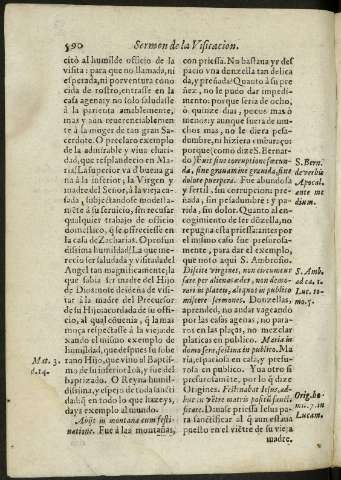 590 Sermon de la Visitacion.
citò al humilde officio de la
visita: para que no llamada, ni
esperada, ni por ventura cono
cida de rostro, entrasse en la
casa agena: y no solo saludasse
à la parienta amablemente,
mas y aun reuerenciablemente
à la moger de tan gran Sa-
cerdote. O preclaro exemplo
de la admirable y viua chari-
dad, que resplandecio en Ma-
ria! La superior va d'buena ga
na à la inferior, la Virgen y
madre del Señor, à la vieja ca-
sada, subjectandose modesta-
mẽte à su seruicio, sin recusar
qualquier trabajo de officio
domestico, q̃ se offreciesse en
la casa de Zacharias. O profun
dissima humildad! La que me-
recio ser saludada y visitada del
Angel tan magnificamente; la
que sabia ser madre del Hijo
de Dios: no se desdeña de visi-
tar à la madre del Precursor
de su Hijo: acordada de su offi-
cio, al qual conuenia, q̃ la mas
moça respectasse à la vieja: de
xando el mismo exemplo de
humildad, que despues su sobe
rano Hijo, que vino al Baptis-
mo de su inferior Ioã, y fue del
baptizado. O Reyna humil-
dissima, y espejo de toda sancti
dad: q̃ en todo lo que hazeys,
days exemplo al mundo.
Abijt in montana cum festi-
natione. Fue à las montañas,
con priessa. No bastaua yr des
pacio vna donzella tan delica
da, y preñada? Quanto à su pre
ñez, no le pudo dar impedi-
mento: porque seria de ocho,
ò quinze dias, pocos mas ò
menos: y aunque fuera de mu-
chos mas, no le diera pesa-
dumbre, ni hiziera embaraços
porque (como dize S. Bernar-
do) Fuit sine corruptione fœcun-
da, sine grauamine grauida, sine
dolore puerpera. Fue abundosa
y fertil, sin corrupcion: pre-
ñada, sin pesadumbre: y pa-
rida, sin dolor. Quanto al en-
cogimiento de ser dõzella, no
repugna esta priessa: antes por
el mismo caso fue presurosa-
mente, para dar el exemplo,
que noto aqui S. Ambrosio.
Discite virgines, non circumcur
sare per alienas ædes, non demo-
rari in plateis, aliquos in publico
miscere sermones. Donzellas,
aprended, no andar vagueando
por las casas agenas, no para-
ros en las plaças, no mezclar
platicas en publico. Maria in
domo sera, festina in publico. Ma
ria, espaciosa en casa, y presu-
rosa en publico. Yua otro si
presurosamẽte, por lo q̃ dize
Origines. Festinabat Iesus, ad-
huc in vtere matris positus sancti
ficare. Dauase priessa Iesus pa-
ra sanctificar al q̃ aun estaua
puesto en el viẽtre de su vieja
madre.
Mat. 3.
d. 14.
S. Bern.
de verbis
Apocal.
ante me
dium.
S. Amb.
ad ca. 1.
Luc. to-
mo. 5.
Orig. ho-
mi. 7. in
Lucam.